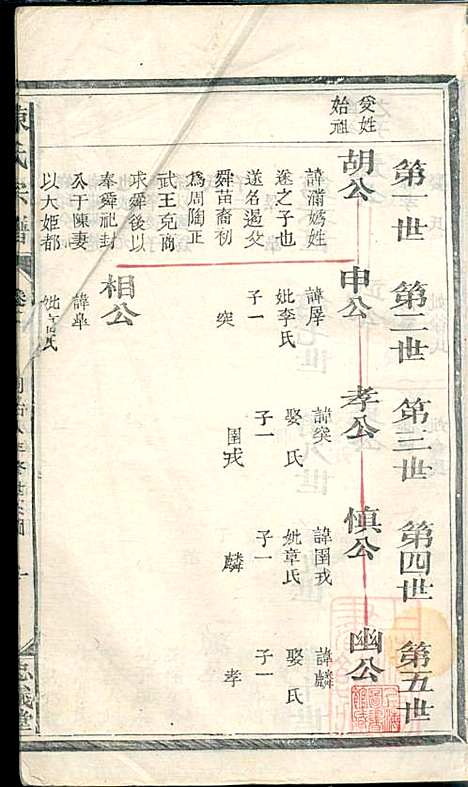 第一世
第二世
第三世
第四世
第五世
受姓
始祖
胡公
諱滿媯姓
遂之子也
遂名遏父
舜苗裔初
爲周陶正
武王克商
求舜後以
奉舜祀封
公于陳妻
以大姬都
申公
諱犀
妣李氏
子一
突
相公
諱皋
孝公
諱突
娶 氏
子一
圉戎
慎公
諱圉戎
妣章氏
子一
麟
幽公
諱麟
娶 氏
子一
孝
陳氏宗譜
忠義堂